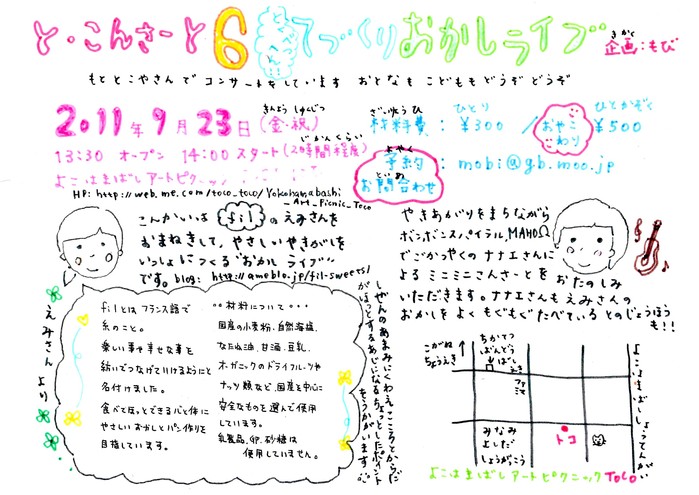 と・こんさーと6 とくべつへん てづくりおかしライブ
きかく
企画：もび
もとことこやさんで コンサートをしています おとなも こどもも どうぞ どうぞ
きんよう しゅくじつ
2011年9月23日(金・祝)
じかんくらい
13:30 オープン 14:00 スタート(2時間程度)
よこはまばしアートピクニック
HP: http://web.me.com/toco_toco/Yokohamabashi
-Art_Picnic_Toco
ざいりょうひ ひとり ひとかぞく
材料費：¥300 / おやこわり ¥500
よやく
予約
といあ
お問合わせ
: mobi@gb.moo.jp
こんかいは filのえみさんを
おまねきして、やさしいやきがしを
いっしょにつくる"おかしライブ"
です。blog: http://ameblo.jp/fil-sweets/
やきあがりをまちながら
ボンボンスパイラル、MAHOΩ
でごかつやくのナナエさんに
よるミニミニこんさーとをおたのしみ
いただきます。ナナエさんもえみさんの
おかしをよくもぐもぐたべているとのじょうほう
も!!
えみさんより
filとはフランス語で
糸のこと。
楽しい事や幸せな事を
紡いでつなげていけるようにと
名付けました。
食べてほっとできる心と体に
やさしいおかしとパン作りを
目指しています。
材料について・・・
国産の小麦粉、自然海塩、
なたね油、甘酒、豆乳、
オーガニックのドライフルーツや
ナッツ類など、国産を中心に
安全なものを選んで使用
しています。
乳製品、卵、砂糖は
使用していません。
しぜんのあまみにくわえ、こころとからだ
がほっとするあじになるちょっとしたポイント
もうかがいます
こがねちょうえき
ちかてつ
ばんどう
ばしえき
ファミマ
よこはまばししょうてんがい
みなみ
よしだ
しょうがっこう
トコ
よこはまばしアートピクニックToco